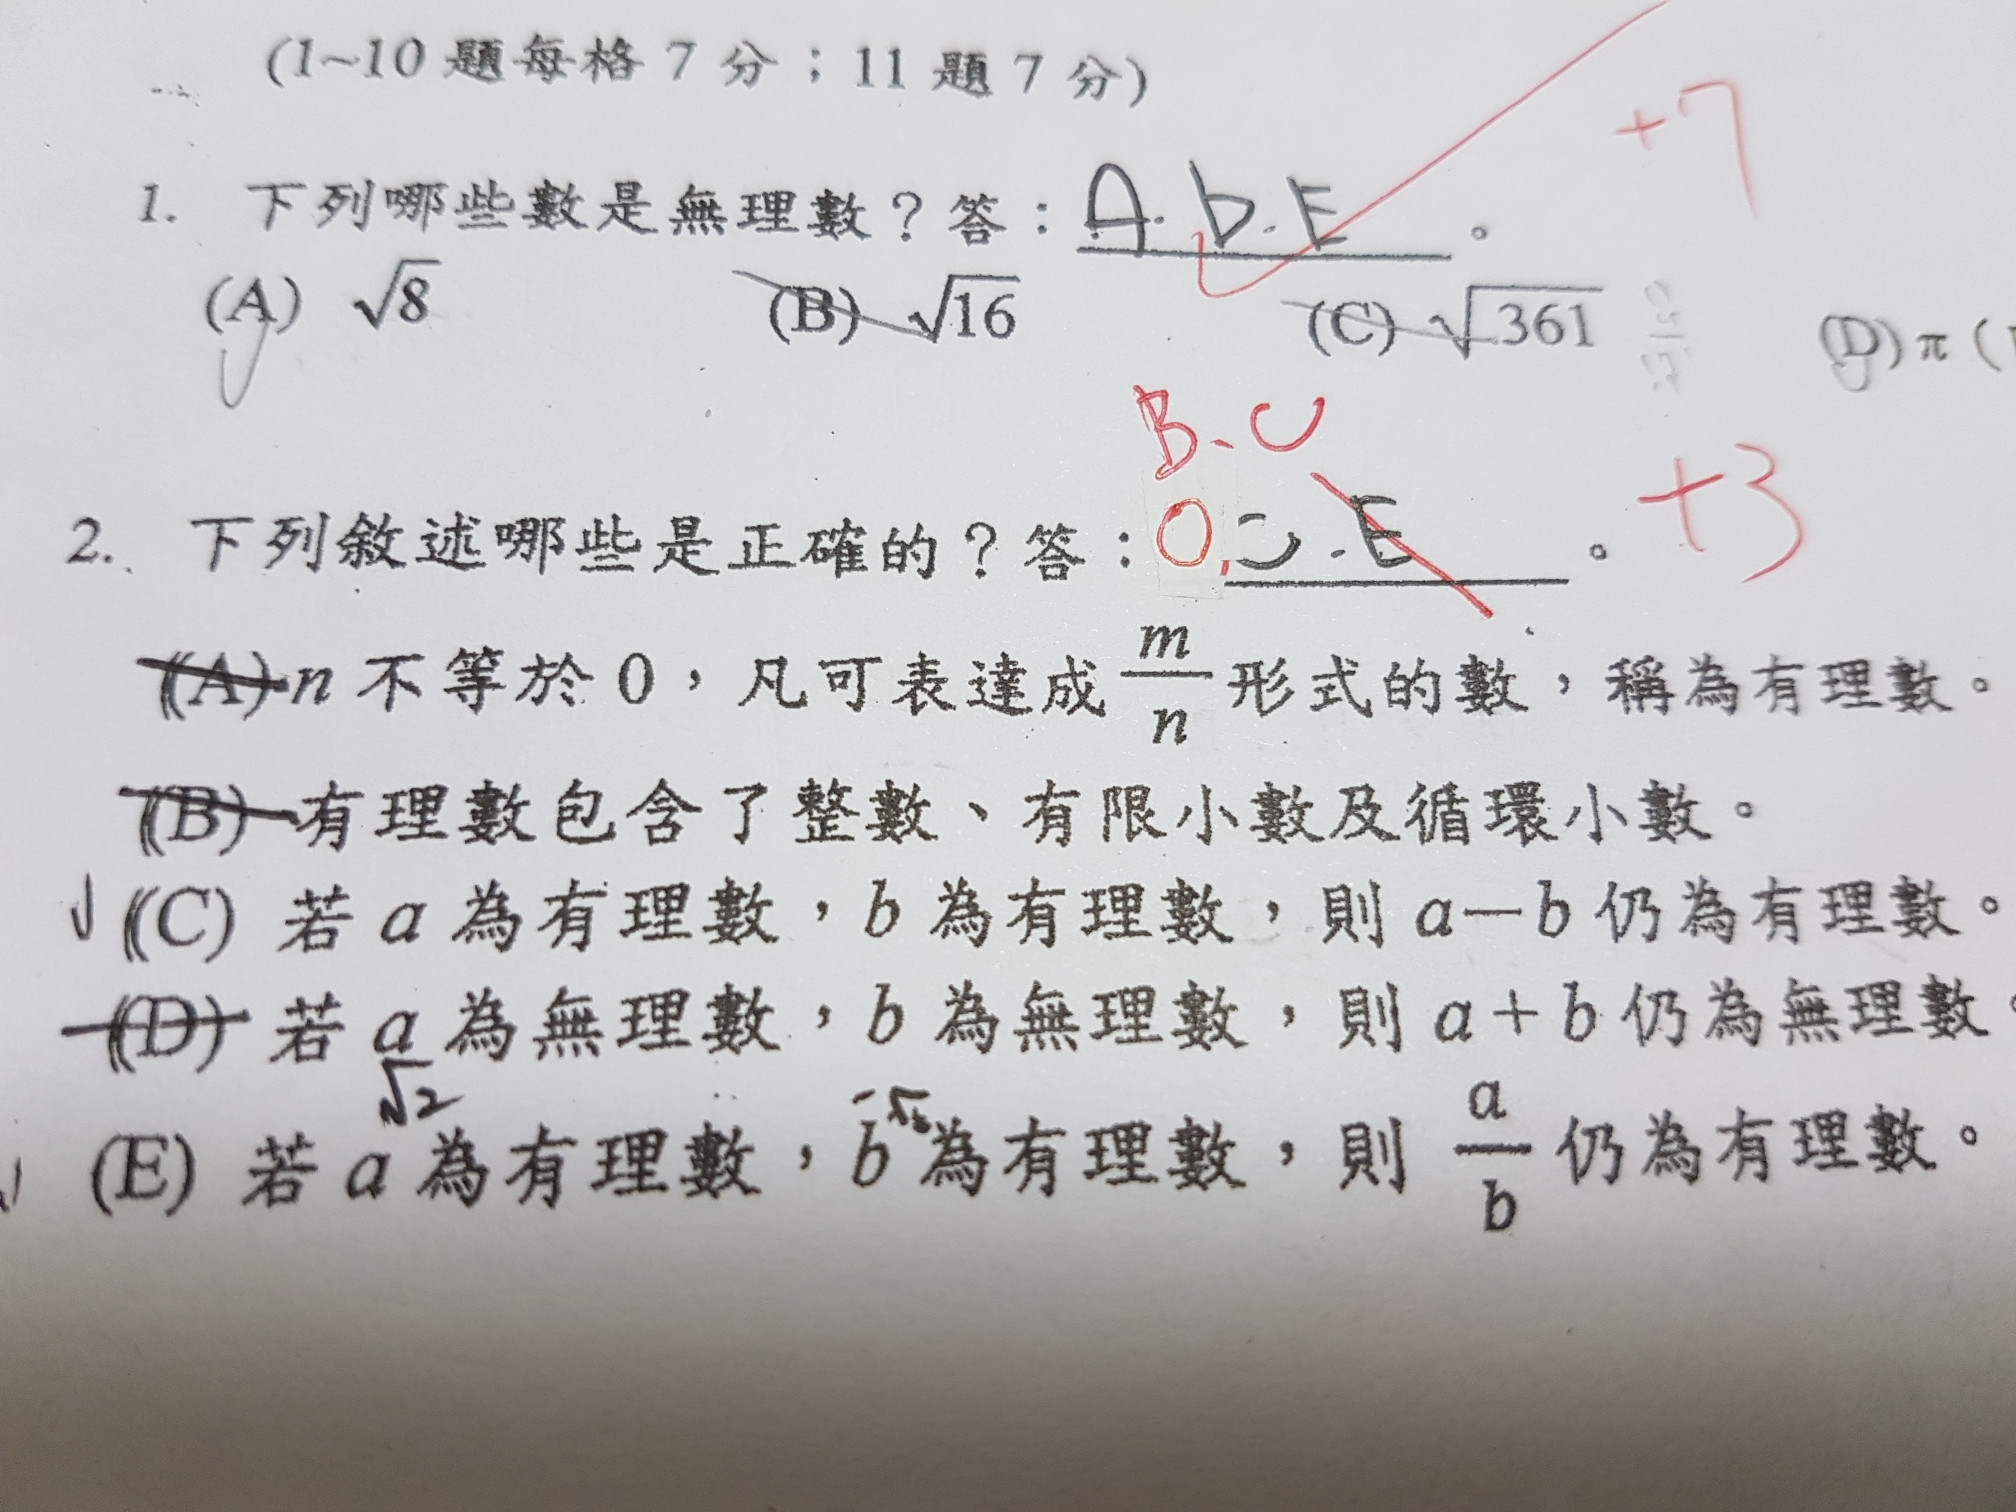 (1~10 題每格 7 分；11 題 7 分)
+7
1. 下列哪些數是無理數？答：A.D.E。
(A) √8 (B) √16 (C) √361 (D) π (
B、C
2. 下列敘述哪些是正確的？答：C.E。 +3
(A) n 不等於 0，凡可表達成 m/n 形式的數，稱為有理數。
(B) 有理數包含了整數、有限小數及循環小數。
(C) 若 a 為有理數，b 為有理數，則 a－b 仍為有理數。
(D) 若 a 為無理數，b 為無理數，則 a＋b 仍為無理數。
√2
(E) 若 a 為有理數，b 為有理數，則 a/b 仍為有理數。